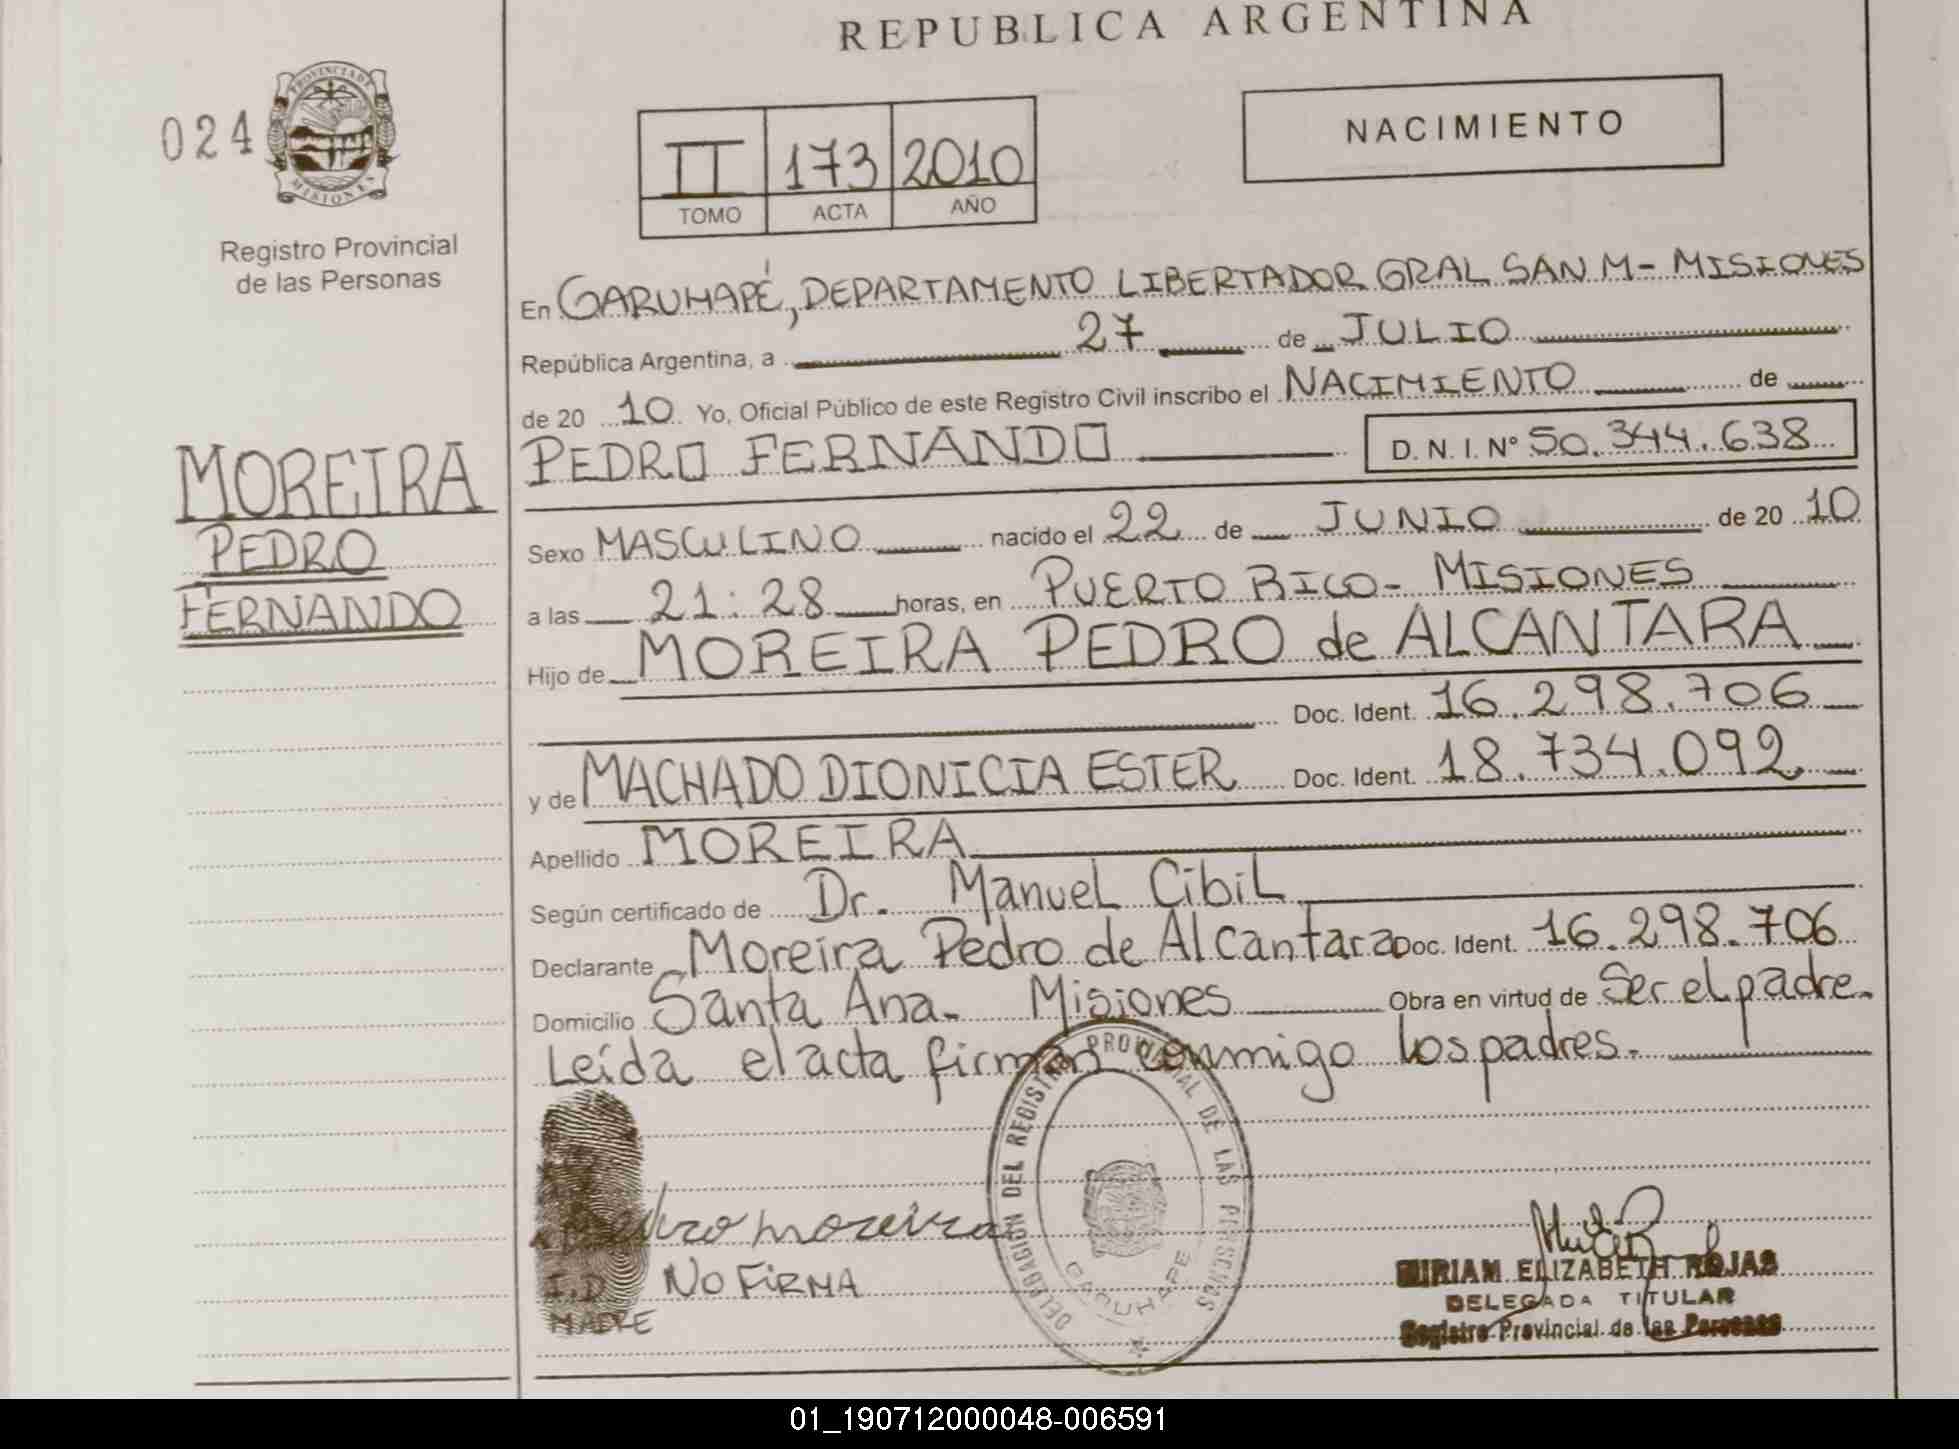 REPUBLICA ARGENTINA
024
PROVINCIA DE
MISIONES
Registro Provincial
de las Personas
II 173 2010
TOMO ACTA AÑO
NACIMIENTO
En GARUHAPÉ, DEPARTAMENTO LIBERTADOR GRAL SAN M- MISIONES
República Argentina, a 27 de JULIO
de 20 10 Yo, Oficial Público de este Registro Civil inscribo el NACIMIENTO de
PEDRO FERNANDO D.N.I.Nº 50.344.638
MOREIRA
PEDRO
FERNANDO
Sexo MASCULINO nacido el 22 de JUNIO de 20 10
a las 21:28 horas, en PUERTO RICO- MISIONES
Hijo de MOREIRA PEDRO de ALCANTARA
Doc. Ident. 16.298.706
y de MACHADO DIONICIA ESTER Doc. Ident. 18.734.092
Apellido MOREIRA
Según certificado de Dr. Manuel Cibil
Declarante Moreira Pedro de Alcantara Doc. Ident. 16.298.706
Domicilio Santa Ana- Misiones Obra en virtud de Ser el padre.
Leída el acta firman conmigo los padres.-
DELEGACION DEL REGISTRO PROVINCIAL DE LAS PERSONAS
GARUHAPE
Pedro moreira
I.D NO FIRMA
MADRE
MIRIAM ELIZABETH ROJAS
DELEGADA TITULAR
Registro Provincial de las Personas
01_190712000048-006591